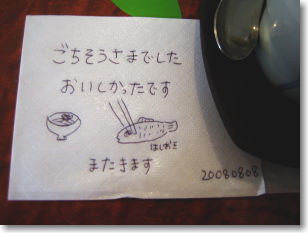 ごちそうさまでした
おいしかったです
はしおき
またきます
20080808